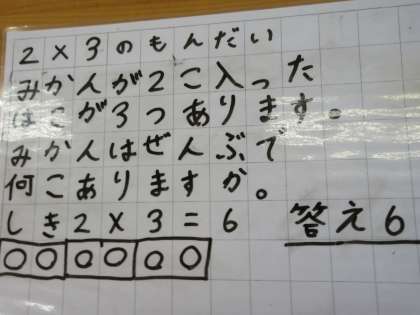 2×3のもんだい
みかんが2こ入った
はこが3つあります。
みかんはぜんぶで
何こありますか。
しき2×3=6
答え6